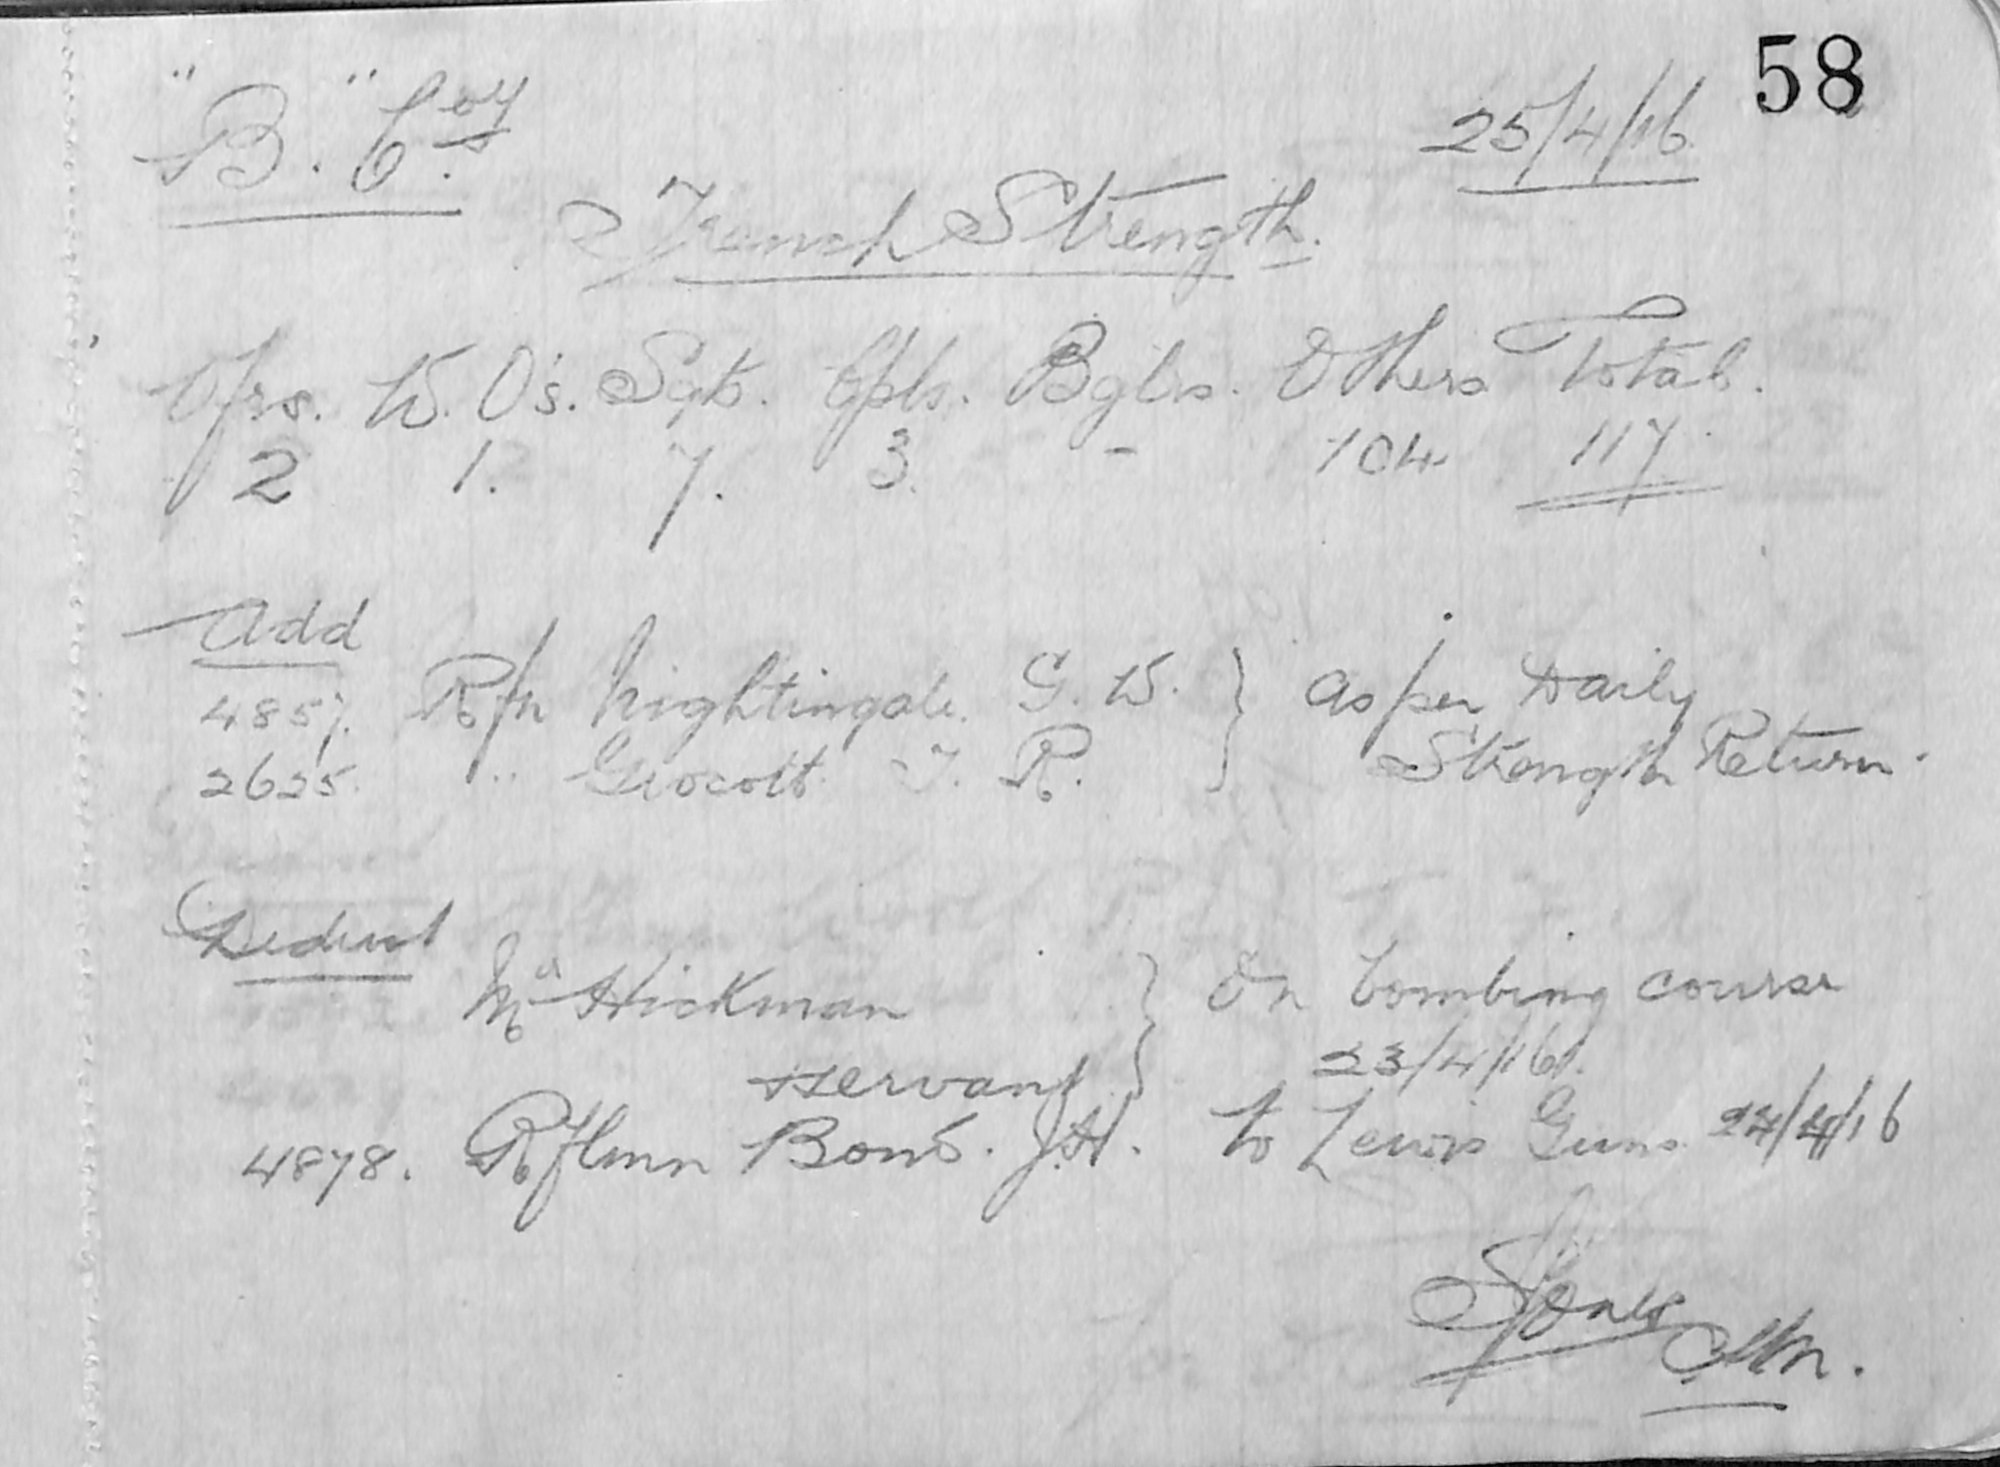 58
"B." Coy. 25/4/16
Trench Strength.
Ofrs. W.O's. Sgts. Cpls. Bglrs. Others Total.
2 1. 7. 3. - 104 117
Add
4857. Rfn Nightingale. G. W. } as per Daily
2625. " T. R. } Strength Return.
Deduct
Mr Hickman } On bombing course
servant } 23/4/16.
4878. Rflmn Bond. J.H. to Lewis Guns 24/4/16
Jones